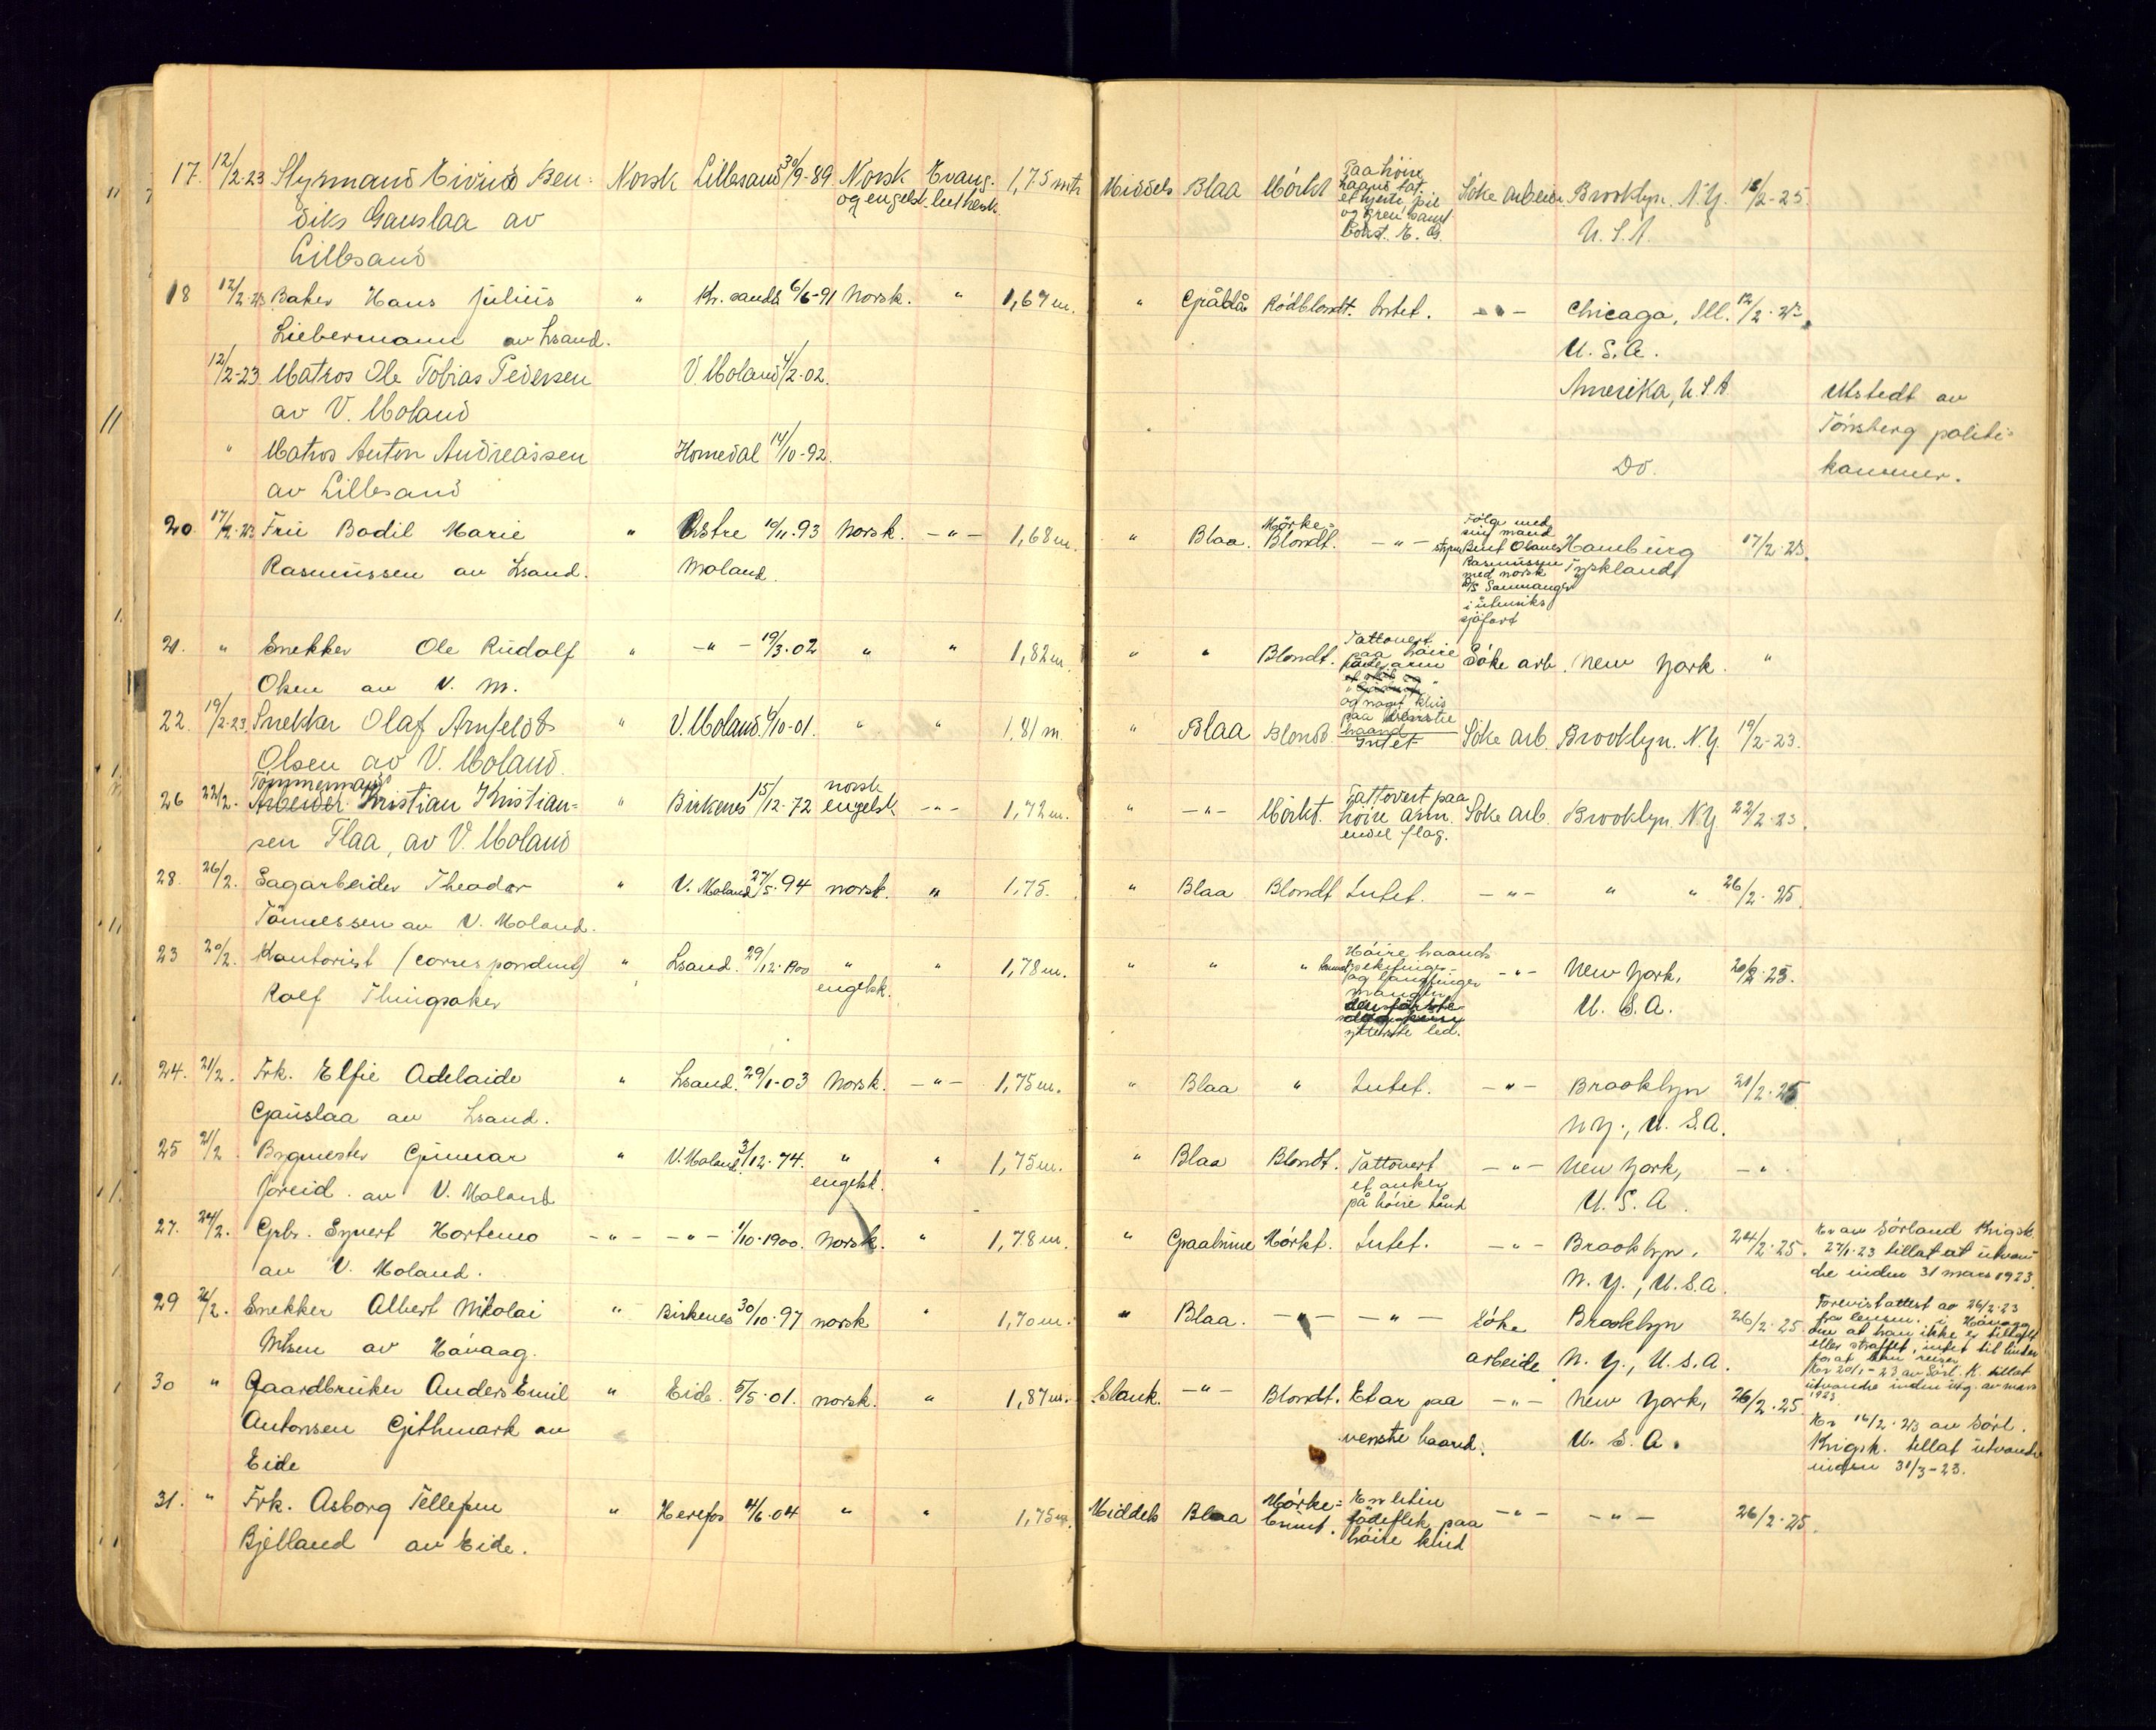 17. 12/2-23 Styrmand Eivind Ben- Norsk Lillesand 30/9-89 Norsk Evang. 1,75 mtr Middels Blaa Mörkt Paa höire Söke arbeide. Brooklyn. N.Y. 12/2-25.
diks Gauslaa av og engelsk. luthersk haand tat. U.S.A.
Lillesand et hjerte, pil
og gren samt
bokst. E. G.
18 12/2-23 Baker Hans Julius " Kr.sand 6/6-91 Norsk. " 1,67 m. " Gråblå Rödblondt. Intet. -"- Chicago, Ill. 12/2-25.
Liebermann av Lsand. U.S.A.
12/2-23 Matros Ole Tobias Pedersen V. Moland 4/2-02. Amerika, U.S.A Utstedt av
av V. Moland Tönsberg politi-
" Matros Anton Andreassen Homedal 14/10-92. Do. kammer.
av Lillesand
20 17/2-23 Fru Bodil Marie " Östre 10/11-93 Norsk. -"- 1,68 m. " Blaa. Mörke- -"- Fölge med Hamburg 17/2-25.
Rasmussen av Lsand. Moland. Blondt. sin mand Tyskland
styrm. Bent Olaves
Rasmussen
med norsk
D/S Samnanger
i utenriks
sjöfart
21. " Snekker Ole Rudolf " -"- 19/3-02 " " 1,82 m. " " Blondt. Tattovert Söke arb. New York. "
Olsen av V. M. paa höire
arm
og noget kluss
paa venstre
haand
22. 19/2-23 Snekker Olaf Arnfeldt " V. Moland. 6/10-01. " " 1,81 m. " Blaa Blondt. Intet Söke arb. Brooklyn. N.Y. 19/2-23.
Olsen av V. Moland.
Tömmermand
26 22/2. Arbeider Kristian Kristian- " Birkenes 15/12-72 norsk -"- 1,72 m. " -"- Mörkt. Tattovert paa Söke arb. Brooklyn. N.Y. 22/2-23.
sen Flaa, av V. Moland engelsk höire arm.
endel flag.
28. 26/2. Sagarbeider Theodor " V. Moland 27/5-94 norsk. " 1,75. " Blaa Blondt Intet. -"- " " 26/2-25.
Tönnessen av V. Moland.
23 20/2. Kontorist (correspondent) " Lsand. 29/12-1900 " " 1,78 m. " " " Höire haands -"- New York, 20/2-25.
Rolf Thingsaker engelsk. pekefinger U.S.A.
og langfinger
mangler
ytterste led.
24. 21/2. Frk. Elfie Adelaide " Lsand. 29/1-03 Norsk. -"- 1,75 m. " Blaa " Intet. -"- Brooklyn 21/2-25.
Gauslaa av Lsand. N.Y., U.S.A.
25 21/2 Bygmester Gunnar " V. Moland. 3/12-74. " " 1,75 m. " Blaa Blondt. Tattovert -"- New York, -"-
Joreid. av V. Moland engelsk. et anker U.S.A.
på höire hånd
27. 24/2. Gbr. Syvert Hortemo -"- -"- 1/10-1900. Norsk. " 1,78 m. " Graabrune Mörkt. Intet. -"- Brooklyn, 24/2-25. Er av Sörland Krigsk.
av V. Moland. N.Y., U.S.A. 27/1-23 tillat at utvan-
dre inden 31 mars 1923.
29 26/2. Snekker Albert Nikolai " Birkenes 30/10-97 norsk " 1,70 m. " Blaa. -"- -"- Söke Brooklyn 26/2-25. Forevist attest av 26/2-23
Nilsen av Hövaag. arbeide N.Y., U.S.A. fra lensm. i Hövaag
om at han ikke er tiltalt
eller straffet, intet til hinder
for at han reiser.
Er 20/1-23 av Sörl. K. tillat
utvandre inden utg. av mars
1923
30 " Gaardbruker Anders Emil " Eide. 5/5-01. norsk. " 1,87 m. Slank. -"- Blondt. Et ar paa -"- New York, 26/2-25.
Antonsen Gjithmark av venstre haand. U.S.A. Er 16/2-23 av Sörl.
Eide Krigsk. tillat utvandre
inden 31/3-23.
31. " Frk. Asborg Tellefsen " Herefos 4/6-04 " " 1,75 m. Middels Blaa Mörke- En liten -"- -"- 26/2-25.
Bjelland av Eide. brunt. födeflek paa
höire kind